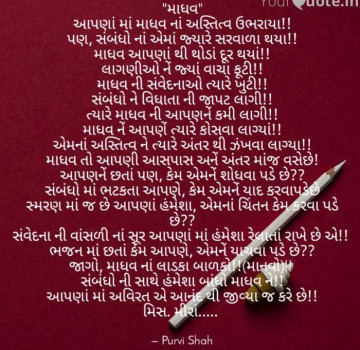 YourQuote.in
"માધવ"
આપણાં માં માધવ નાં અસ્તિત્વ ઉભરાયા!!
પણ, સંબંધો નાં એમાં જ્યારે સરવાળા થયા!!
માધવ આપણાં થી થોડાં દૂર થયાં!!
લાગણીઓ નેં જ્યાં વાચા ફૂટી!!
માધવ ની સંવેદનાઓ ત્યારે ખુટી!!
સંબંધો ને વિધાતા ની જાપટ લાગી!!
ત્યારે માધવ ની આપણનેં કમી લાગી!!
માધવ નેં આપણેં ત્યારે કોસવા લાગ્યાં!!
એમનાં અસ્તિત્વ ને ત્યારે અંતર થી ઝંખવા લાગ્યા!!
માધવ તો આપણી આસપાસ અનેં અંતર માંજ વસેછે!
આપણનેં છતાં પણ, કેમ એમનેં શોધવા પડે છે??
સંબંધો માં ભટકતા આપણે, કેમ એમનેં યાદ કરવાપડેછે
સ્મરણ માં જ છે આપણાં હંમેશા, એમનાં ચિંતન કેમ કરવા પડે
છે??
સંવેદના ની વાંસળી નાં સૂર આપણાં માં હંમેશા રેલાતાં રાખે છે એ!!
ભજન માં છતાં કેમ આપણે, એમનેં યાચવા પડે છે??
જાગો, માધવ નાં લાડકા બાળકો!!(માનવો)!!
સંબંધો ની સાથે હંમેશા બાંધો માધવ ને!!
આપણાં માં અવિરત એ આનંદ થી જીવ્યા જ કરે છે!!
મિસ. મીરાં.....
– Purvi Shah